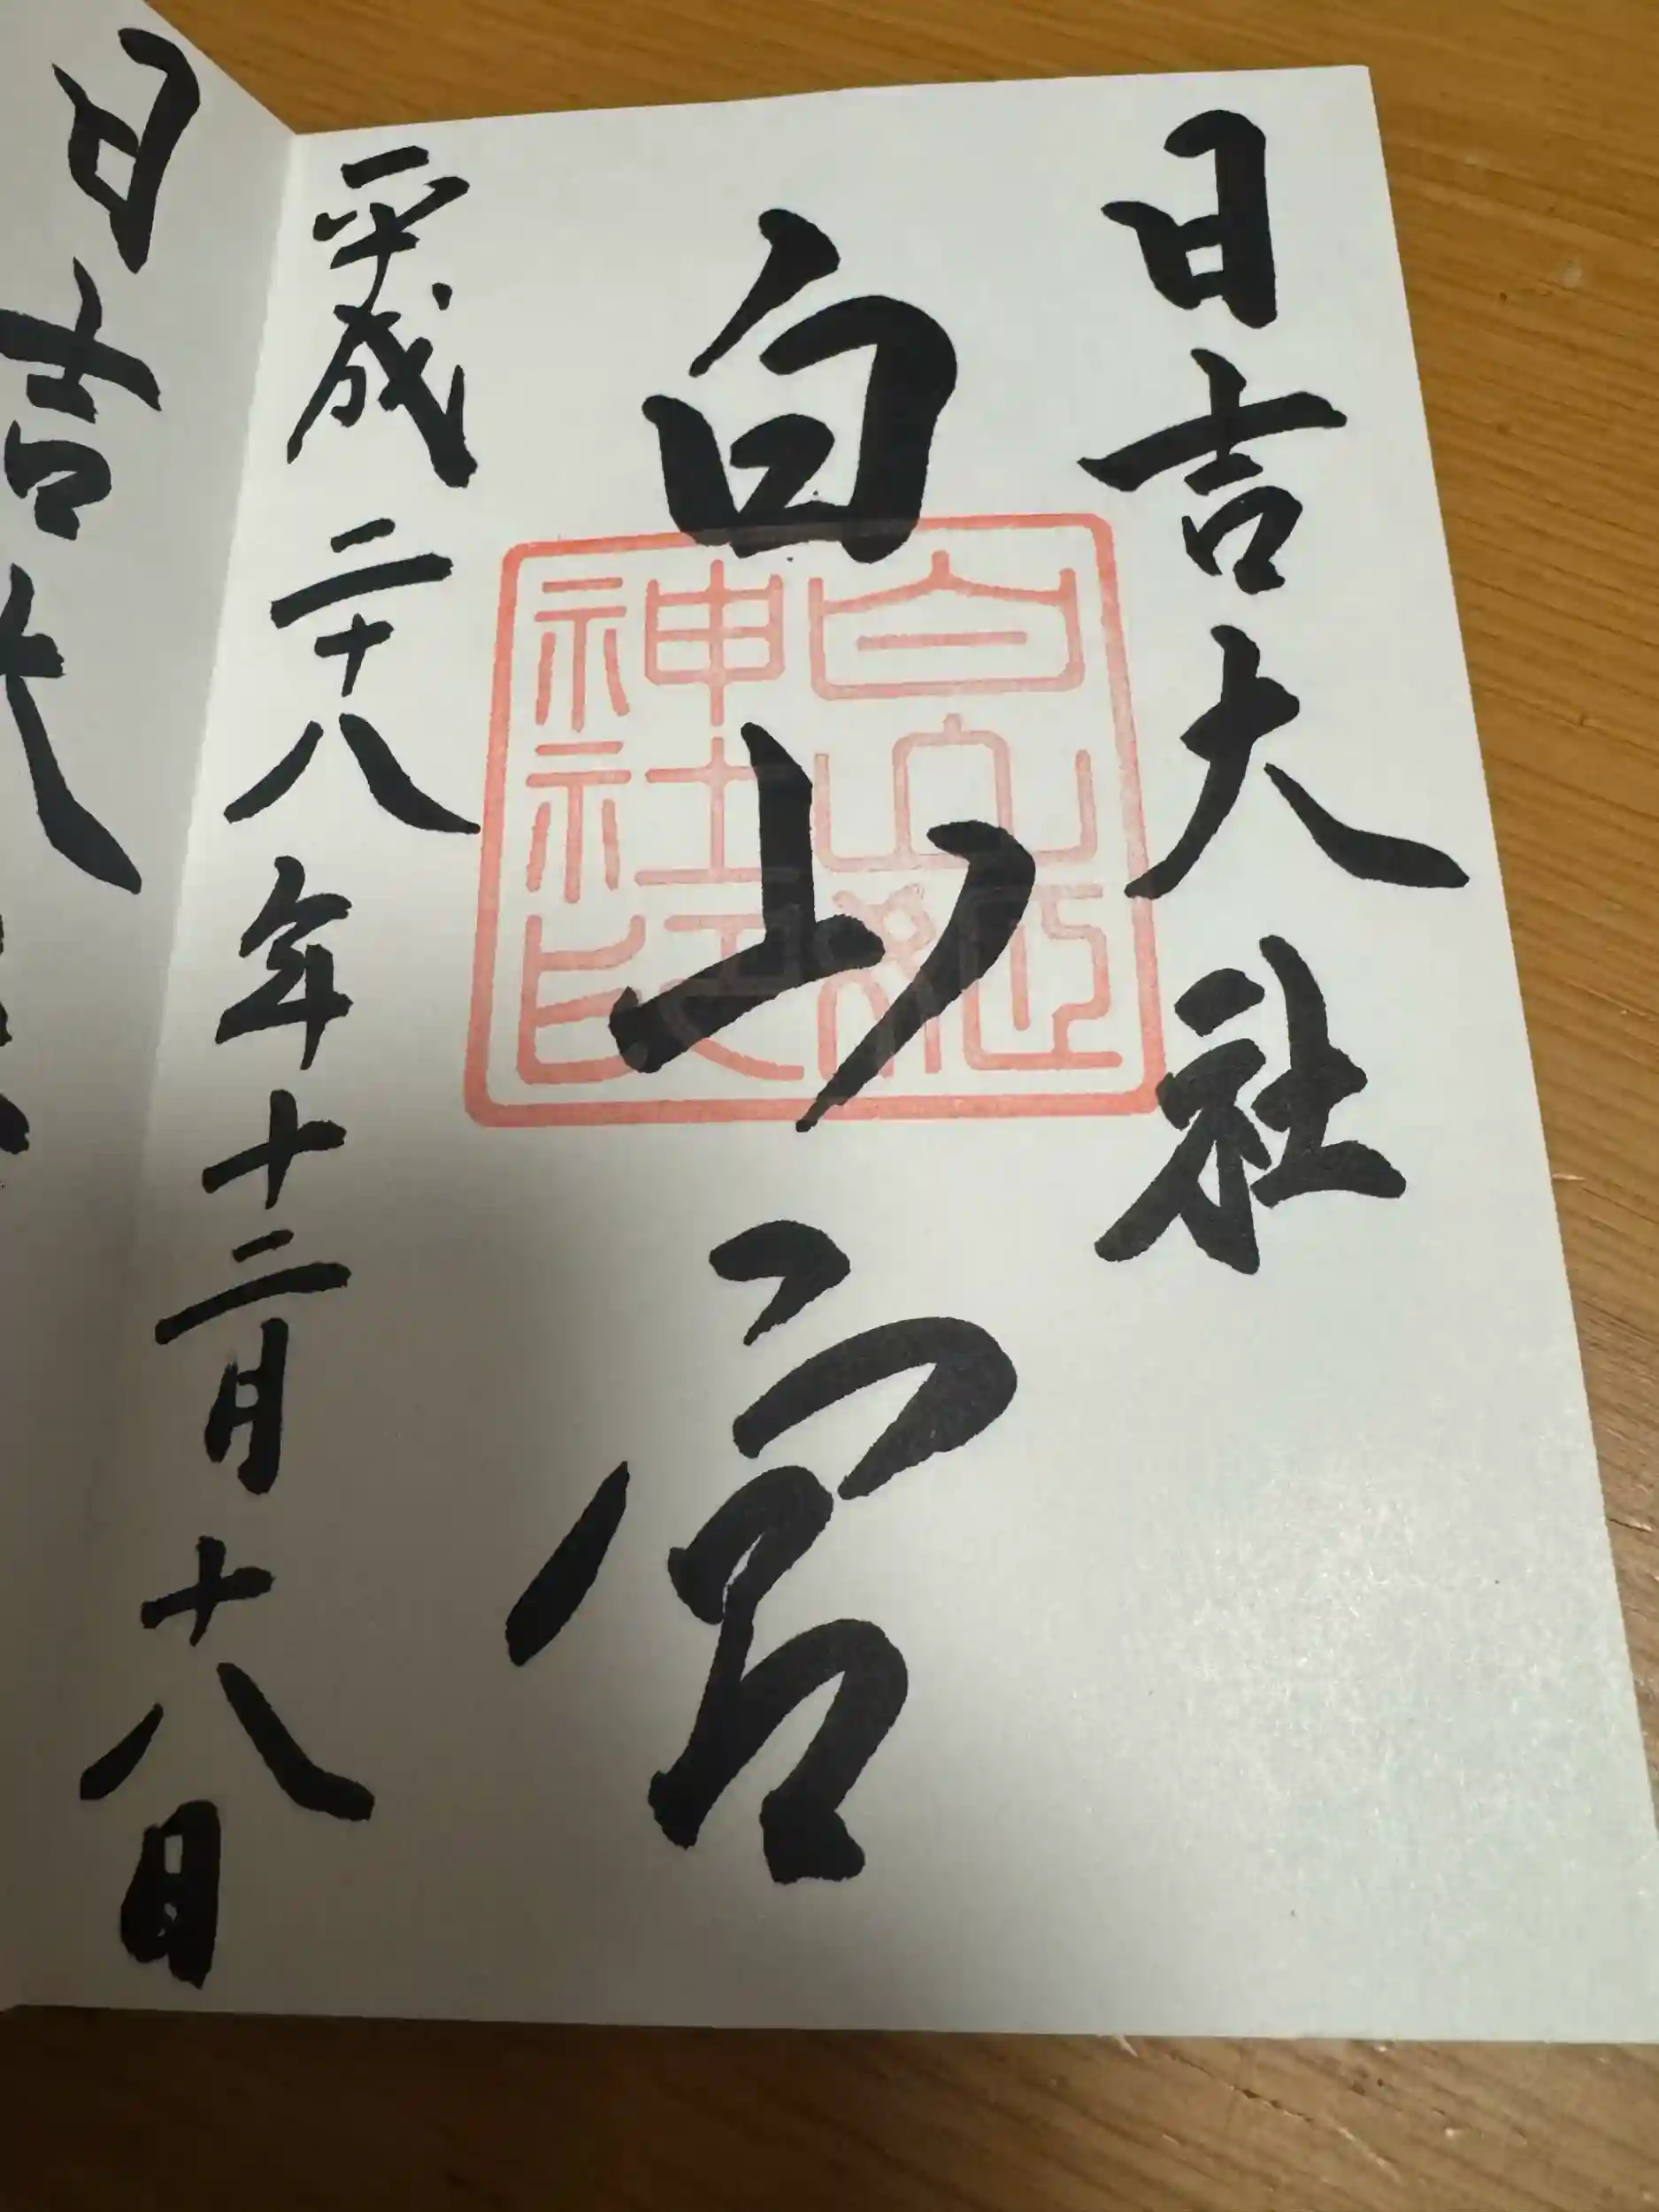 日吉大社
白山宮
白山姫神社印
平成二十八年十二月十八日
日吉大